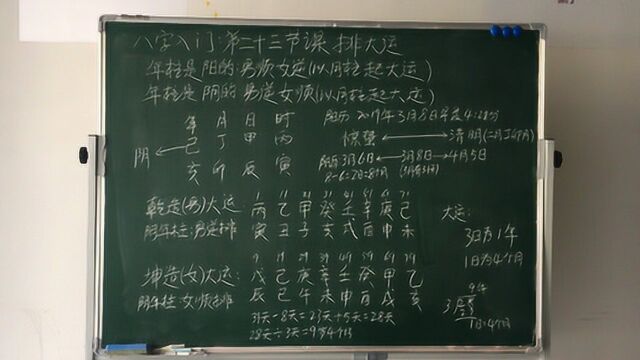 八字入门:第二十三节课 排大运
年柱是阳的 男顺女逆(以月柱起大运)
年柱是阴的 男逆女顺(以月柱起大运)
年 月 日 时
阴 ← 己 丁 甲 丙
亥 卯 辰 寅
阳历 2019年3月8日早上4:
惊蛰 ←→ 清明(二月丁卯月)
阳历3月6日 ← 3月8日 → 4月5日
8-6=2日=8个月
乾造(男)大运:
阴年柱:男逆排
1 11 21 31 41 51 61 71
丙 乙 甲 癸 壬 辛 庚 己
寅 丑 子 亥 戌 酉 申 未
坤造(女)大运:
阴年柱:女顺排
9 19 29 39 49 59 69 79
戊 己 庚 辛 壬 癸 甲 乙
辰 巳 午 未 申 酉 戌 亥
31天-8天=23天+5天=28天
28天÷3天=9岁4个月
大运:
3日为1年
1日为4个月
9年
1日=4个月